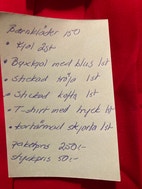 Barnkläder 150
• Kjol 2st
• Byxkjol med blus 1st
• Stickad tröja 1st
• Stickad kofta 1st
• T-shirt med tryck 1st
• kortärmad skjorta 1st
paketpris 250:-
styckpris 50:-